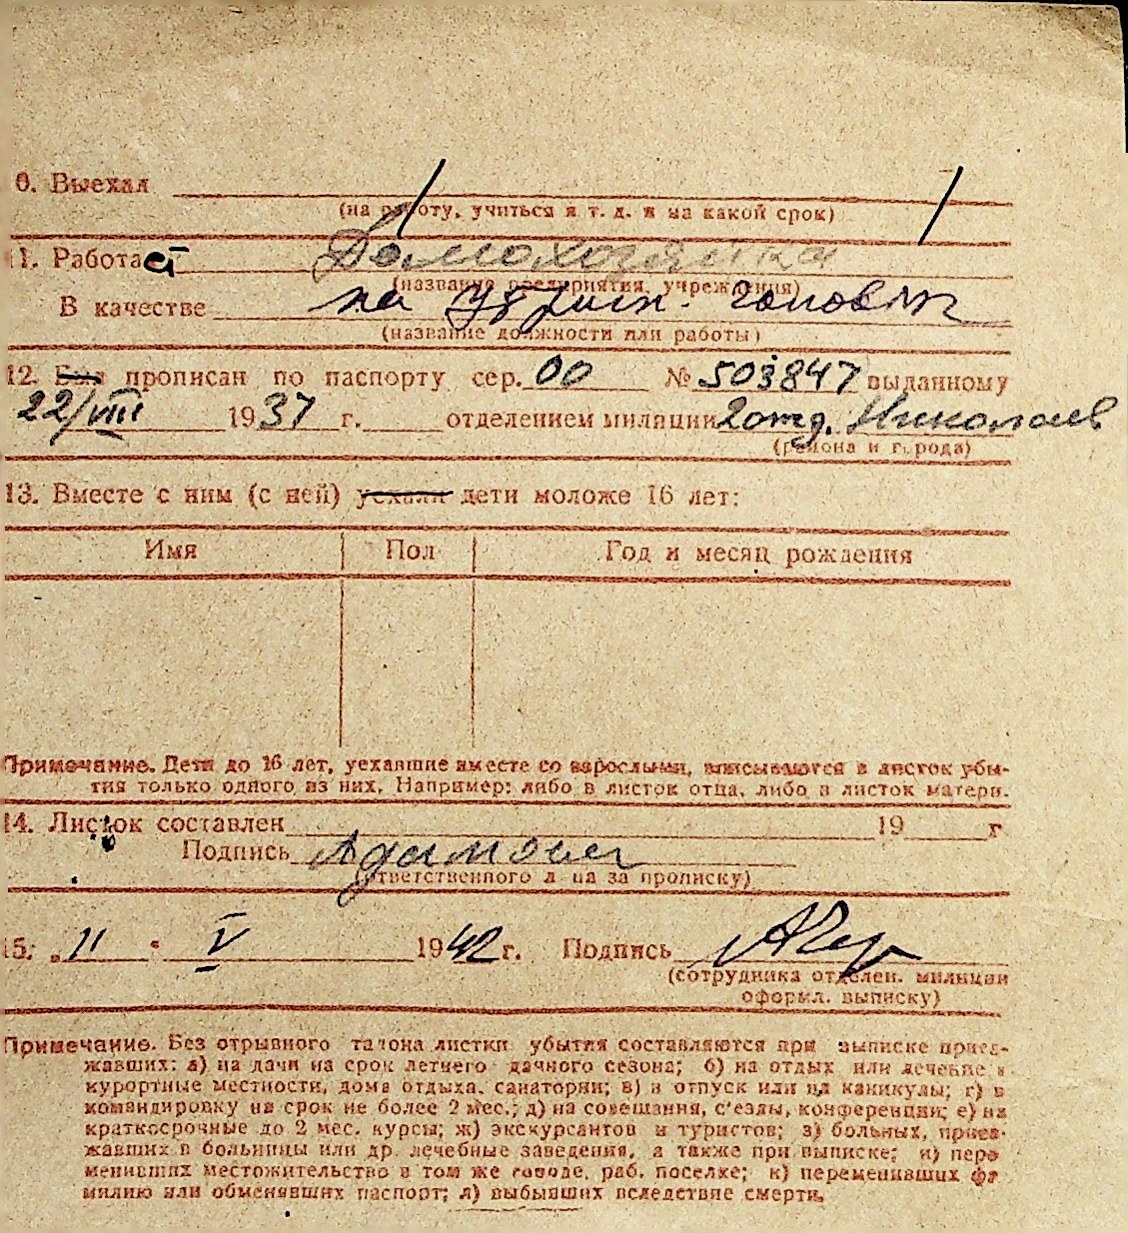 0. Выехал
(на работу, учиться и т. д. и на какой срок)
11. Работает Домохозяйка
(название предприятия, учреждения)
В качестве на
(название должности или работы)
12. Был прописан по паспорту сер. 00 № 503847 выданному
22/VIII 1937 г. отделением милиции 2 отд. Николаев
(района и города)
13. Вместе с ним (с ней) уехали дети моложе 16 лет:
Имя Пол Год и месяц рождения
Примечание. Дети до 16 лет, уехавшие вместе со взрослыми, вписываются в листок убы-
тия только одного из них. Например: либо в листок отца, либо в листок матери.
14. Листок составлен 19 г
Подпись
(ответственного л-ца за прописку)
15. „11 " V 1942 г. Подпись
(сотрудника отделен. милиции
оформл. выписку)
Примечание. Без отрывного талона листки убытия составляются при выписке приез-
жавших: а) на дачи на срок летнего дачного сезона; б) на отдых или лечение в
курортные местности, дома отдыха, санатории; в) в отпуск или на каникулы; г) в
командировку на срок не более 2 мес.; д) на совещания, с'езды, конференции; е) на
краткосрочные до 2 мес. курсы; ж) экскурсантов и туристов; з) больных, приез-
жавших в больницы или др. лечебные заведения, а также при выписке; и) пере
менивших местожительство в том же городе, раб. поселке; к) переменивших фа
милию или обменявших паспорт; л) выбывших вследствие смерти.